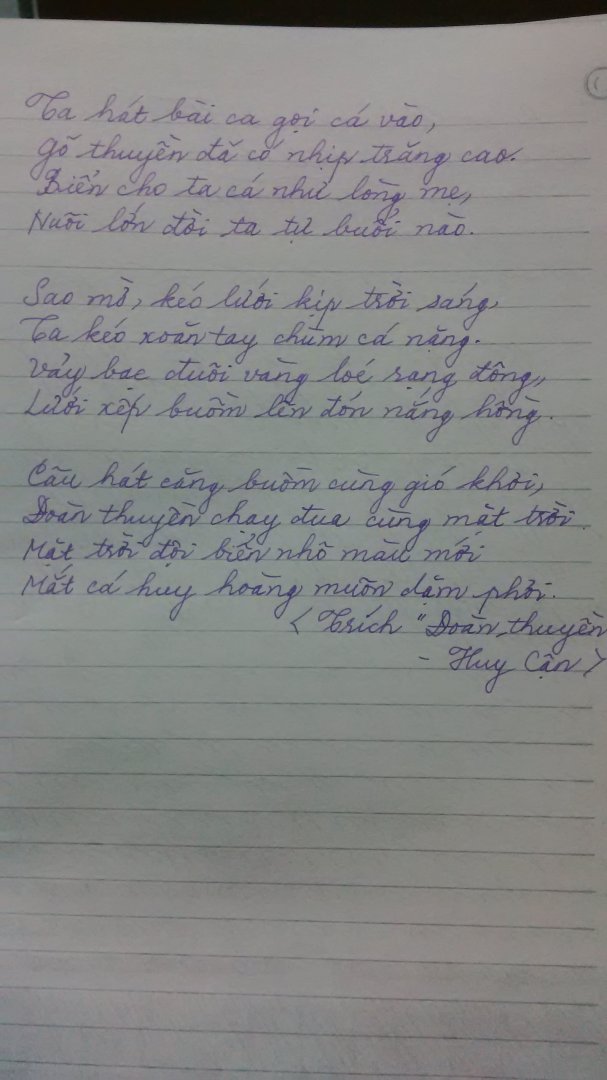 Ta hát bài ca gọi cá vào,
Gõ thuyền đã có nhịp trăng cao.
Biển cho ta cá như lòng mẹ,
Nuôi lớn đời ta tự buổi nào.
Sao mờ, kéo lưới kịp trời sáng,
Ta kéo xoăn tay chùm cá nặng.
Vảy bạc đuôi vàng loé rạng đông,
Lưới xếp buồm lên đón nắng hồng.
Câu hát căng buồm cùng gió khơi,
Đoàn thuyền chạy đua cùng mặt trời.
Mặt trời đội biển nhô màu mới
Mắt cá huy hoàng muôn dặm phơi.
< Trích "Đoàn thuyền
- Huy Cận >